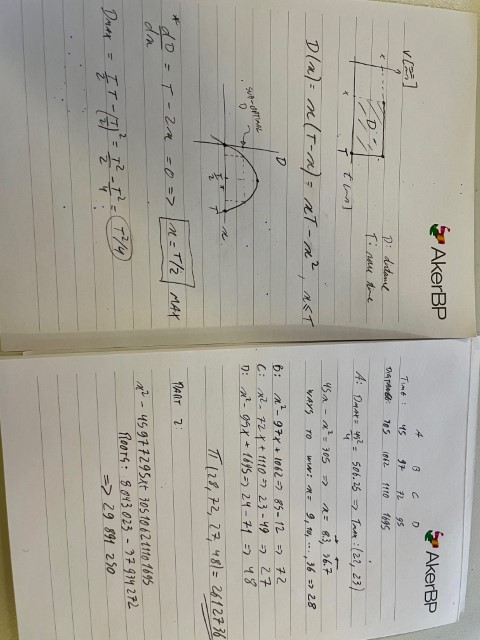 AkerBP
V [mm/ms]
D: distance
T: race time
x
D
x
T
t [ms]
D(x) = x(T-x) = xT - x², x ≤ T
D
SUB-OPTIMAL
D
T/2
*
T
x
* dD/dx = T - 2x = 0 => x = T/2 MAX
Dmax = T/2 T - (T/2)² = T²/2 - T²/4 = T²/4
AkerBP
A B C D
TIME: 45 97 72 95
DISTANCE: 305 1062 1110 1695
A: Dmax = 45²/4 = 506.25 => Tmax: (22, 23)
45x - x² = 305 => x = 8.3, 36.7
WAYS TO WIN: x = 9, 10, ..., 36 => 28
B: x² - 97x + 1062 => 85 - 12 => 72
C: x² - 72x + 1110 => 23 - 49 => 27
D: x² - 95x + 1695 => 24 - 71 => 48
Π (28, 72, 27, 48) = 2612736
PART 2:
x² - 45977295x + 305106211101695
ROOTS: 8 043 023 - 37 934 272
=> 29 891 250